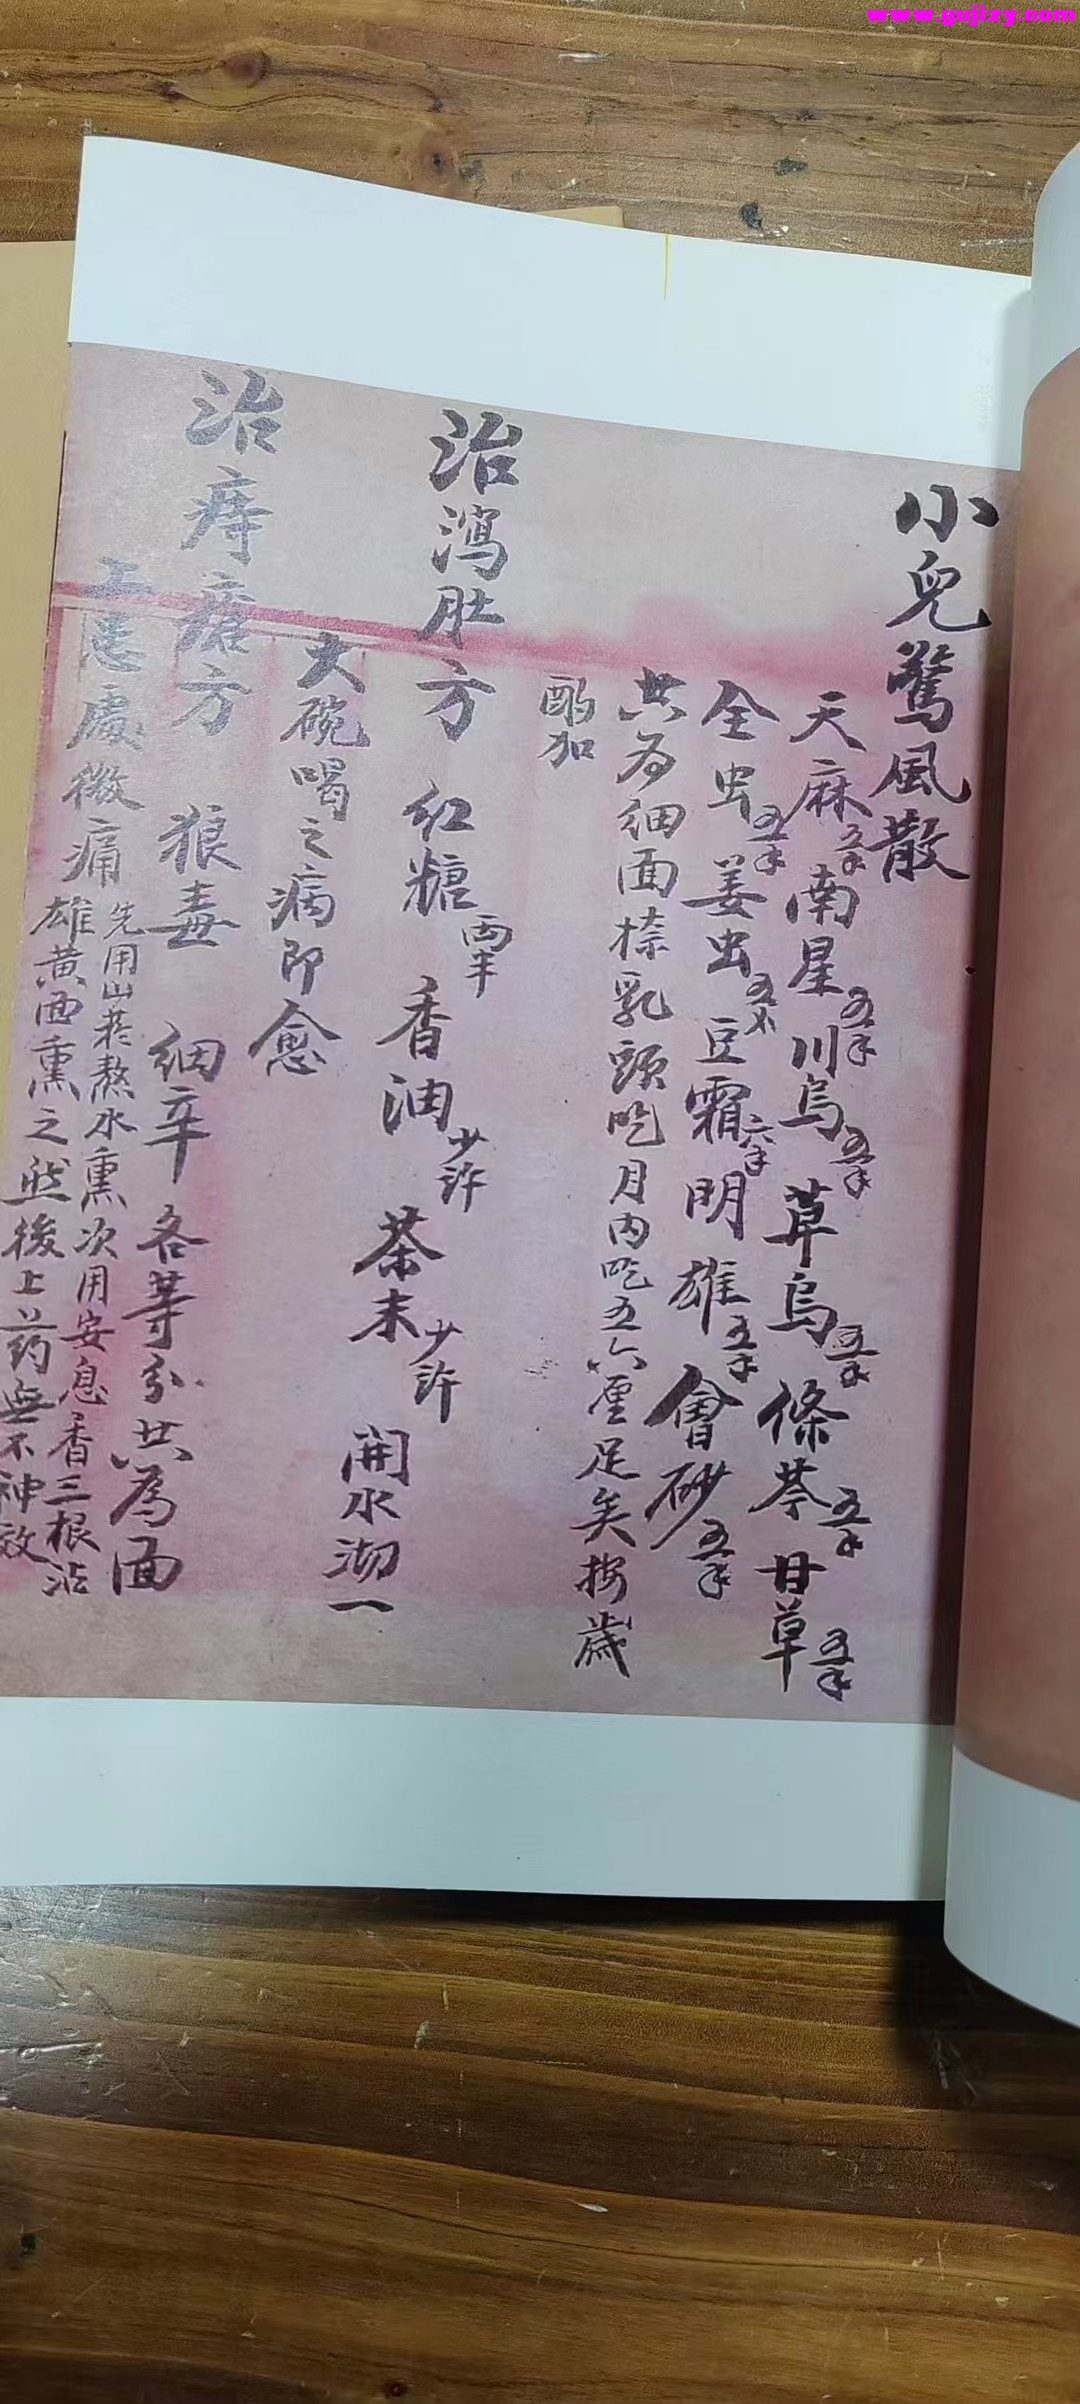 www.gujizy.com
小兒驚風散
天麻五半南星五半川烏五半草烏五半條芩五半甘草五半
全虫五半姜虫五个豆霜六半明雄五半會砂五半
共为细面捺乳頭吃月内吃五六厘足矣按歲
酌加
治瀉肚方 红糖両半 香油少許 茶末少許 開水沏一
大碗喝之病即愈
治痔瘡方 狼毒 细辛 各等分共為面
上患處微痛先用山菸熬水熏次用安息香三根沾
雄黄面熏之然後上药無不神效